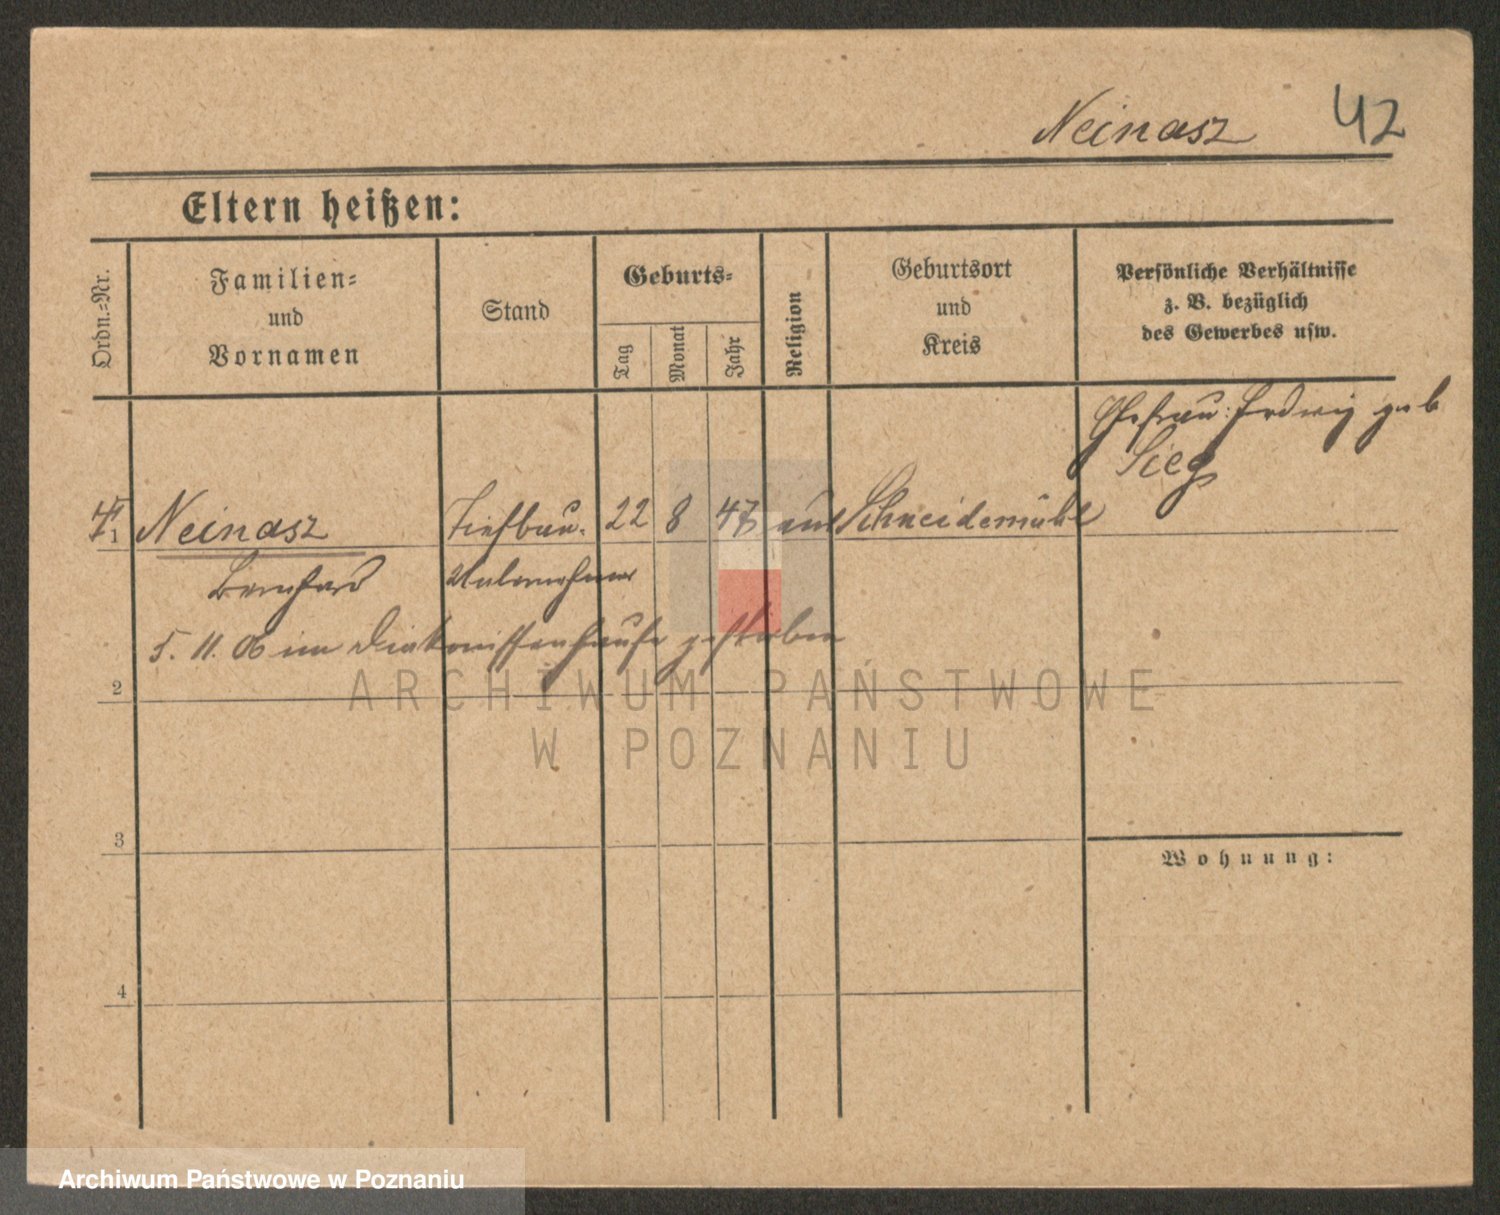 Neinasz 42
Eltern heißen:
Ordn.-Nr.
Familien-
und
Vornamen
Stand
Geburts-
Tag
Monat
Jahr
Religion
Geburtsort
und
Kreis
Persönliche Verhältnisse
z. B. bezüglich
des Gewerbes usw.
Ehefrau: Hedwig geb
Sieg
1 Neinasz Tiefbau- 22 8 47 Schneidemühl
Bernhard Unternehmer
5. 11. 06 im Diakonissenhause gestorben
2
ARCHIWUM PAŃSTWOWE
W POZNANIU
3
Wohnung:
4
Archiwum Państwowe w Poznaniu